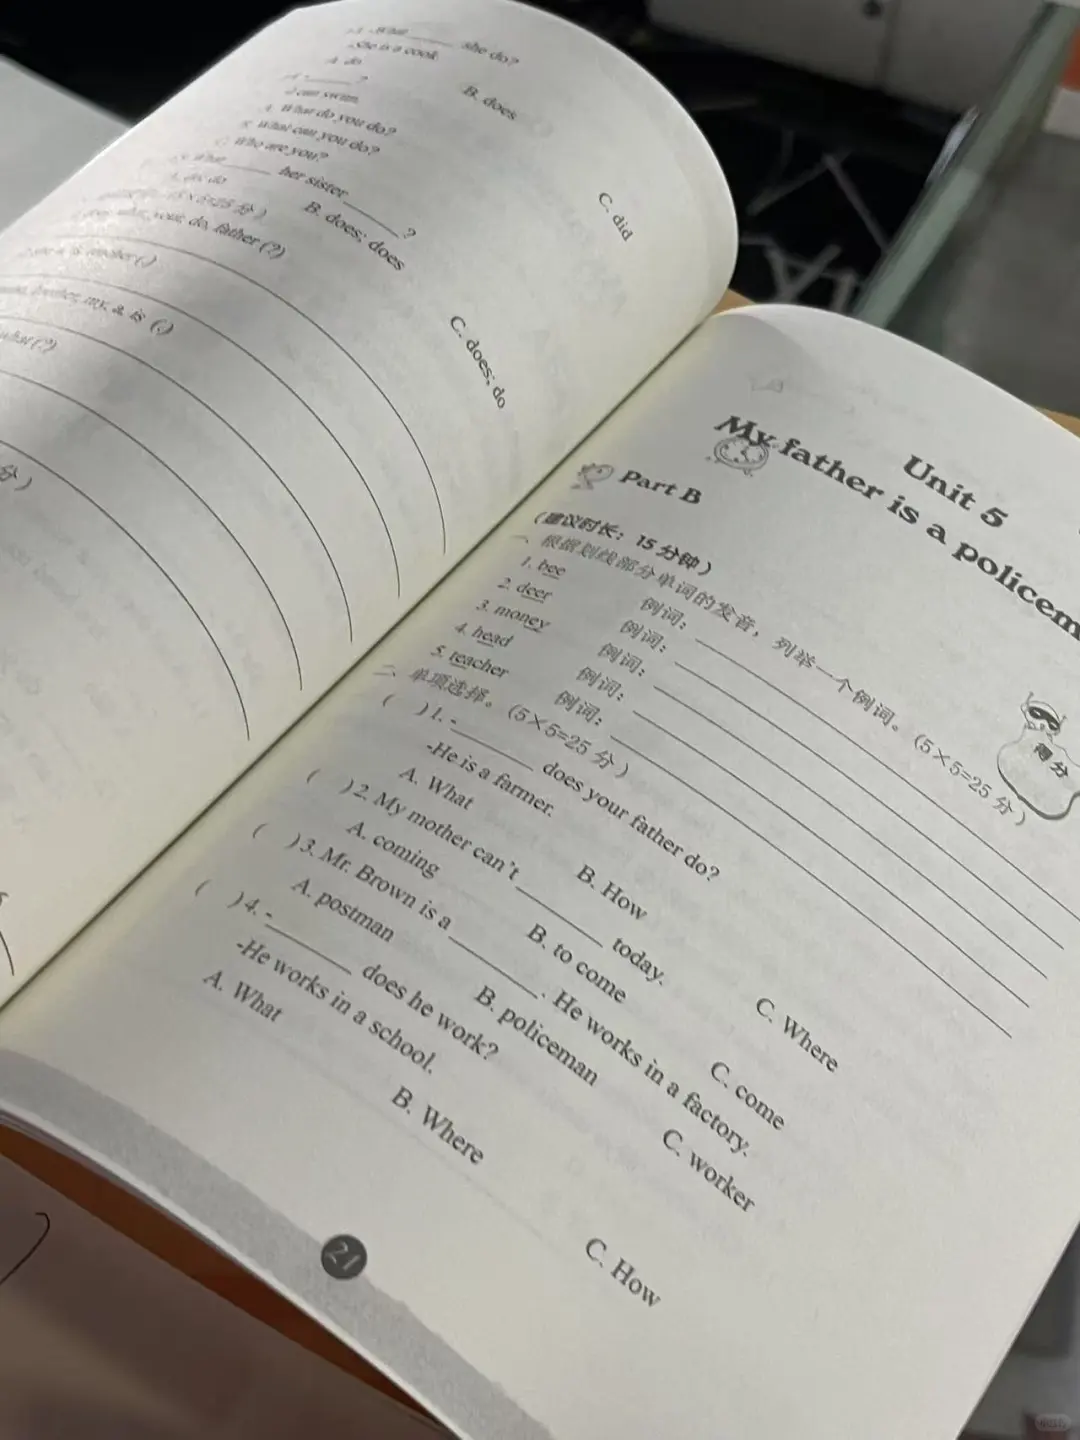 What ______ she do?
-She is a cook.
A. do
B. does
C. did
-______?
-I can swim.
A. What do you do?
B. What can you do?
C. Who are you?
What ______ her sister ______?
A. do; do
B. does; does
C. does; do
(5×5=25 分)
does, what, your, do, father (?)
a, is, teacher (.)
brother, my, a, is (.)
what (?)
分)
Unit 5
My father is a policem
Part B
(建议时长：15 分钟)
一、根据划线部分单词的发音，列举一个例词。(5×5=25 分)
得分
1. bee 例词：
2. deer 例词：
3. money 例词：
4. head 例词：
5. teacher 例词：
二、单项选择。(5×5=25 分)
( ) 1. -______ does your father do?
-He is a farmer.
A. What B. How C. Where
( ) 2. My mother can't ______ today.
A. coming B. to come C. come
( ) 3. Mr. Brown is a ______. He works in a factory.
A. postman B. policeman C. worker
( ) 4. -______ does he work?
-He works in a school.
A. What B. Where C. How
21